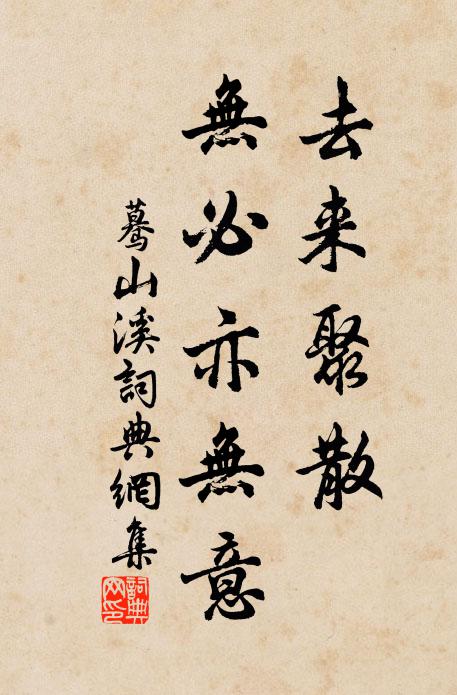 去来聚散
無必亦無意
蓦山溪詞典網集
詞典
网印